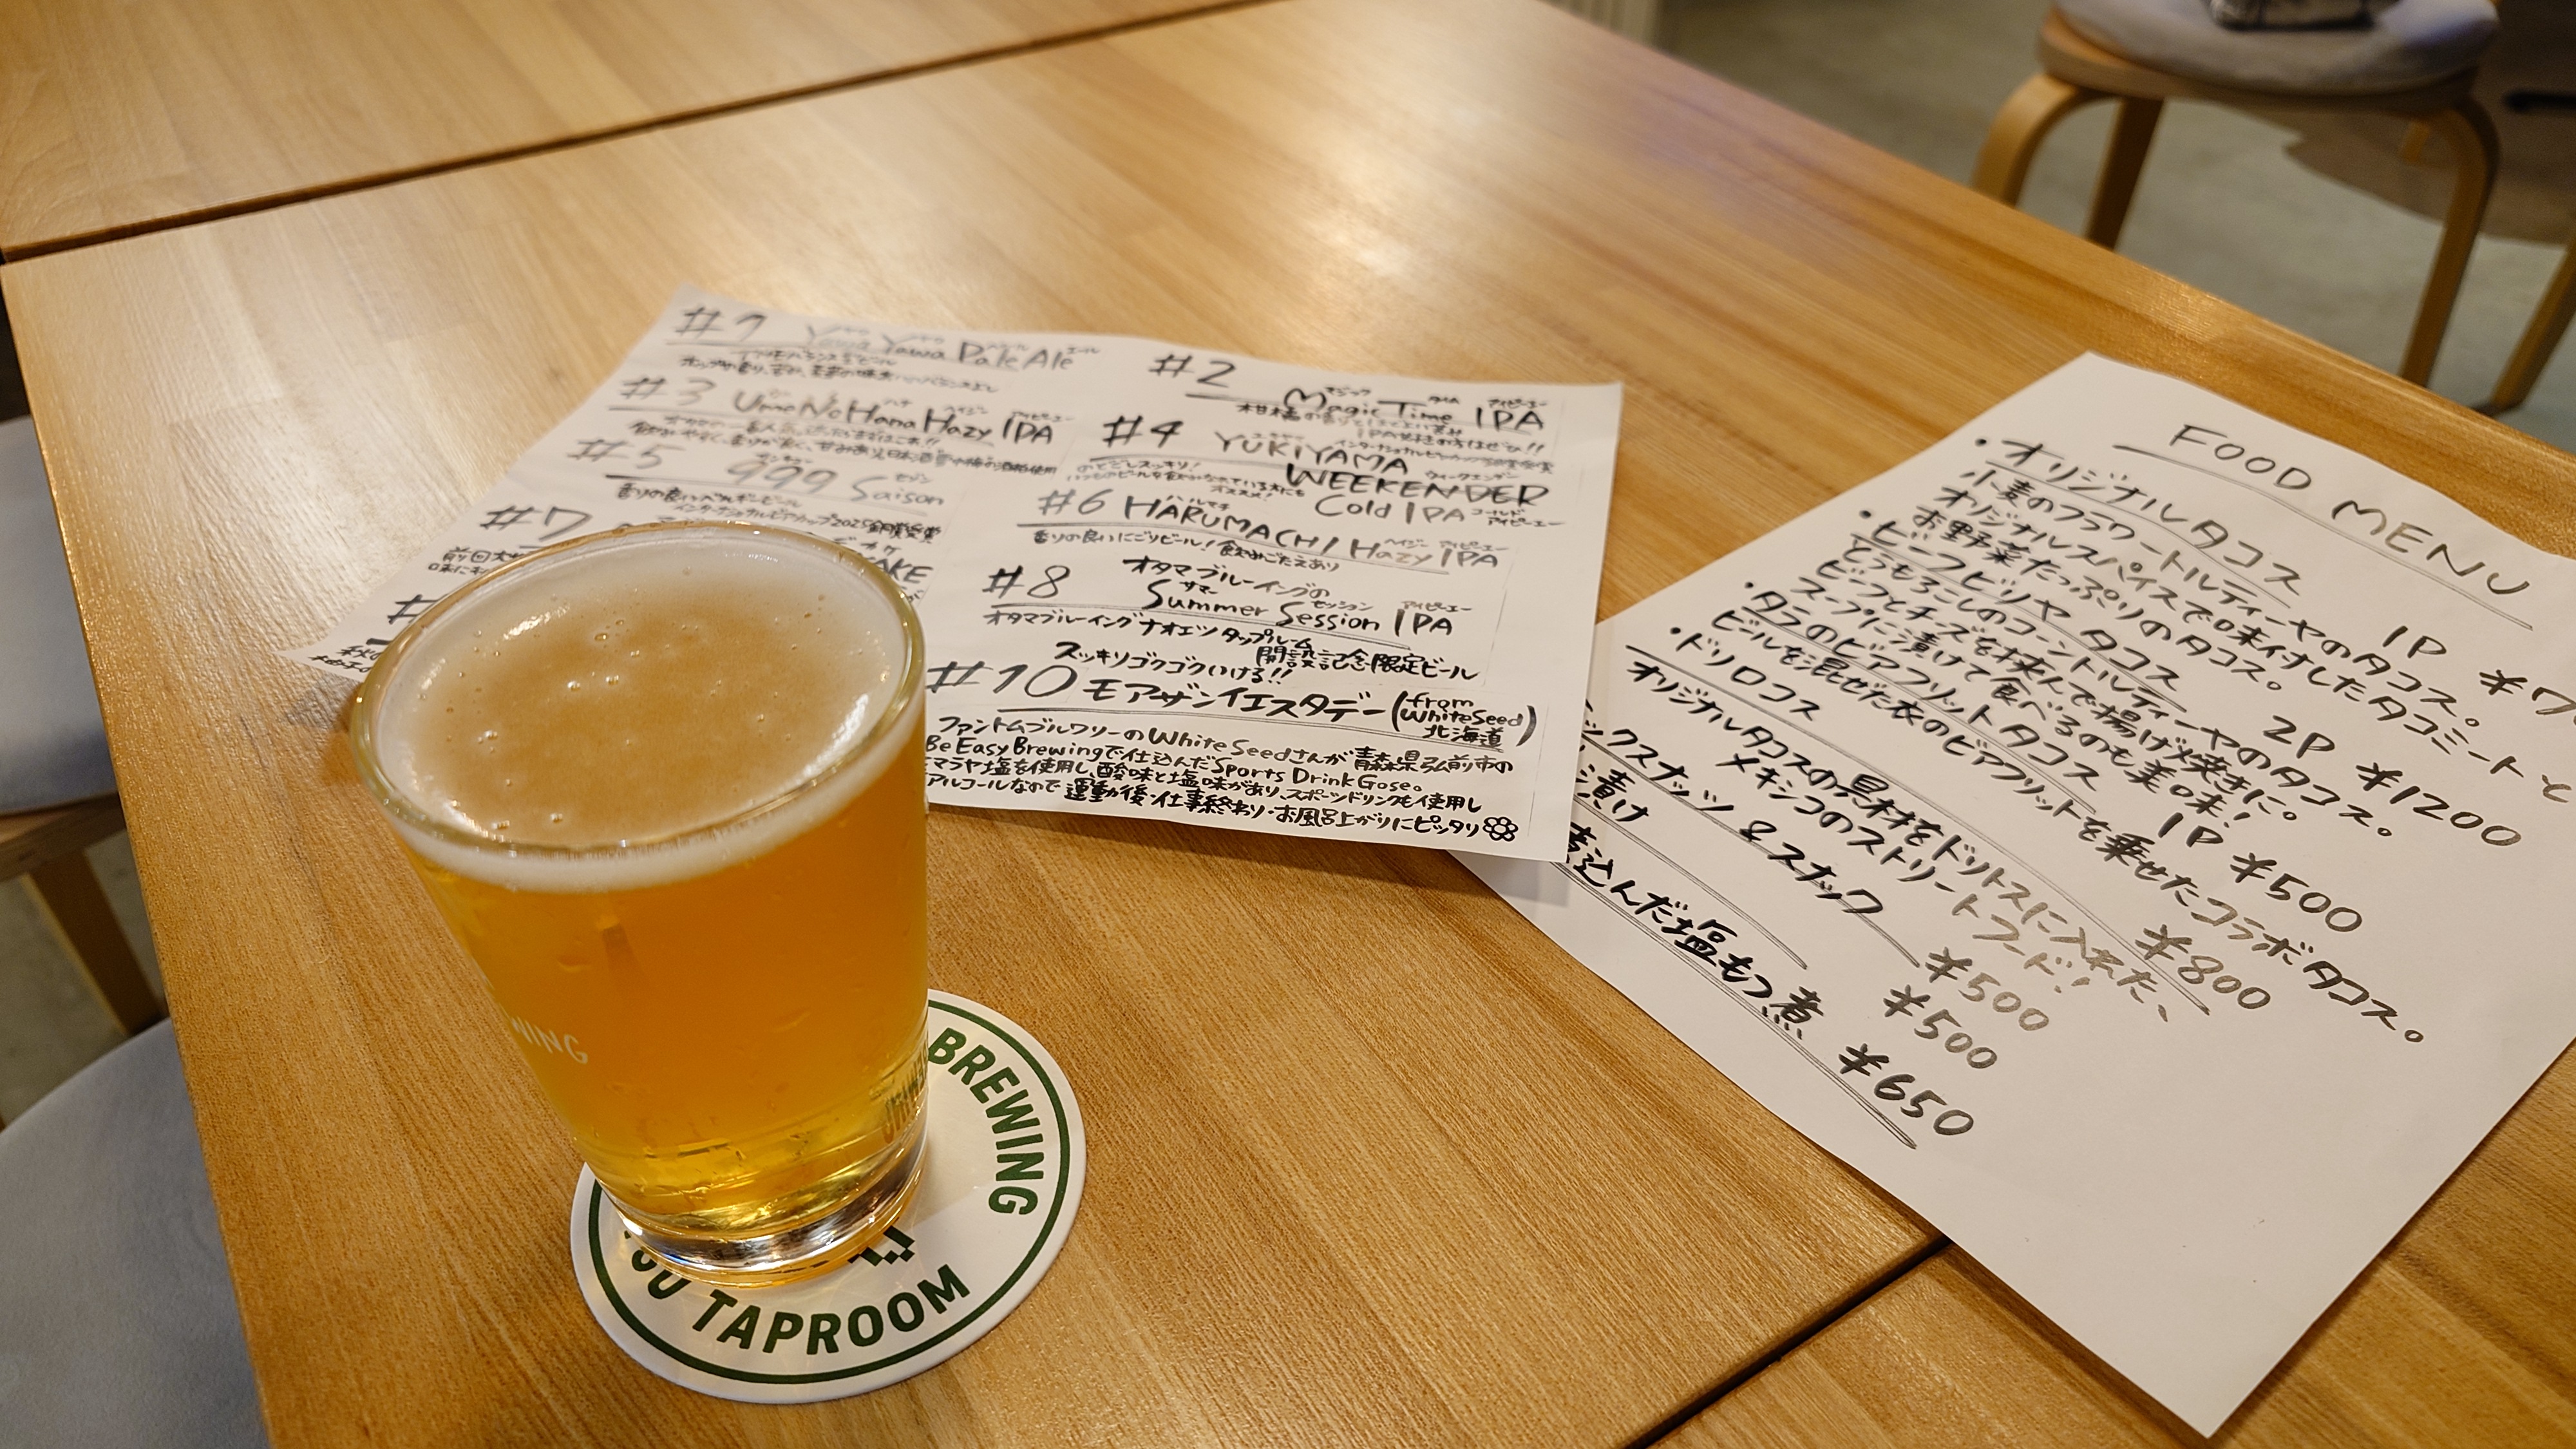 #1 Yawa Yawa Pale Ale
#2 Magic Time IPA
マジック タイム アイピーエー
#3 Ume No Hana Hazy IPA
#4 YUKIYAMA
WEEKENDER
ウィークエンダー
Cold IPA
コールド アイピーエー
のどごしスッキリ!
オススメ!
#5 999 Saison
セゾン
香りの良いベルギービール
インターナショナルビアカップ2025銅賞受賞
#6 HARUMACHI Hazy IPA
ハルマチ ヘイジー アイピーエー
香りの良いにごりビール!飲みごたえあり
#7
前回大
#8 オタマブルーイングの
サマー セッション アイピーエー
Summer Session IPA
オタマブルーイング ナオエツ タップルーム
開設記念限定ビール
スッキリゴクゴクいける!!
#10 モアザンイエスタデー (from WhiteSeed 北海道)
ファントムブルワリーのWhite Seedさんが青森県弘前市の
Be Easy Brewingで仕込んだSports Drink Gose。
マラヤ塩を使用し、酸味と塩味があり、スポーツドリンクも使用し
アルコールなので 運動後・仕事終わり・お風呂上がりにピッタリ
FOOD MENU
・オリジナルタコス 1P ¥7
小麦のフラワートルティーヤのタコス。
オリジナルスパイスで味付したタコミートと
お野菜たっぷりのタコス。
・ビーフビリヤ タコス 2P ¥1200
とうもろこしのコーントルティーヤのタコス。
ビーフとチーズを挟んで揚げ焼きに。
スープに漬けて食べるのも美味!
・タラのビアフリットタコス 1P ¥500
ビールを混ぜた衣のビアフリットを乗せたコラボタコス。
・ドリロコス ¥800
オリジナルタコスの具材をドリトスに入れた、
メキシコのストリートフード!
ックスナッツ & スナック ¥500
漬け ¥500
込んだ塩もつ煮 ¥650
WING
BREWING
TAPROOM